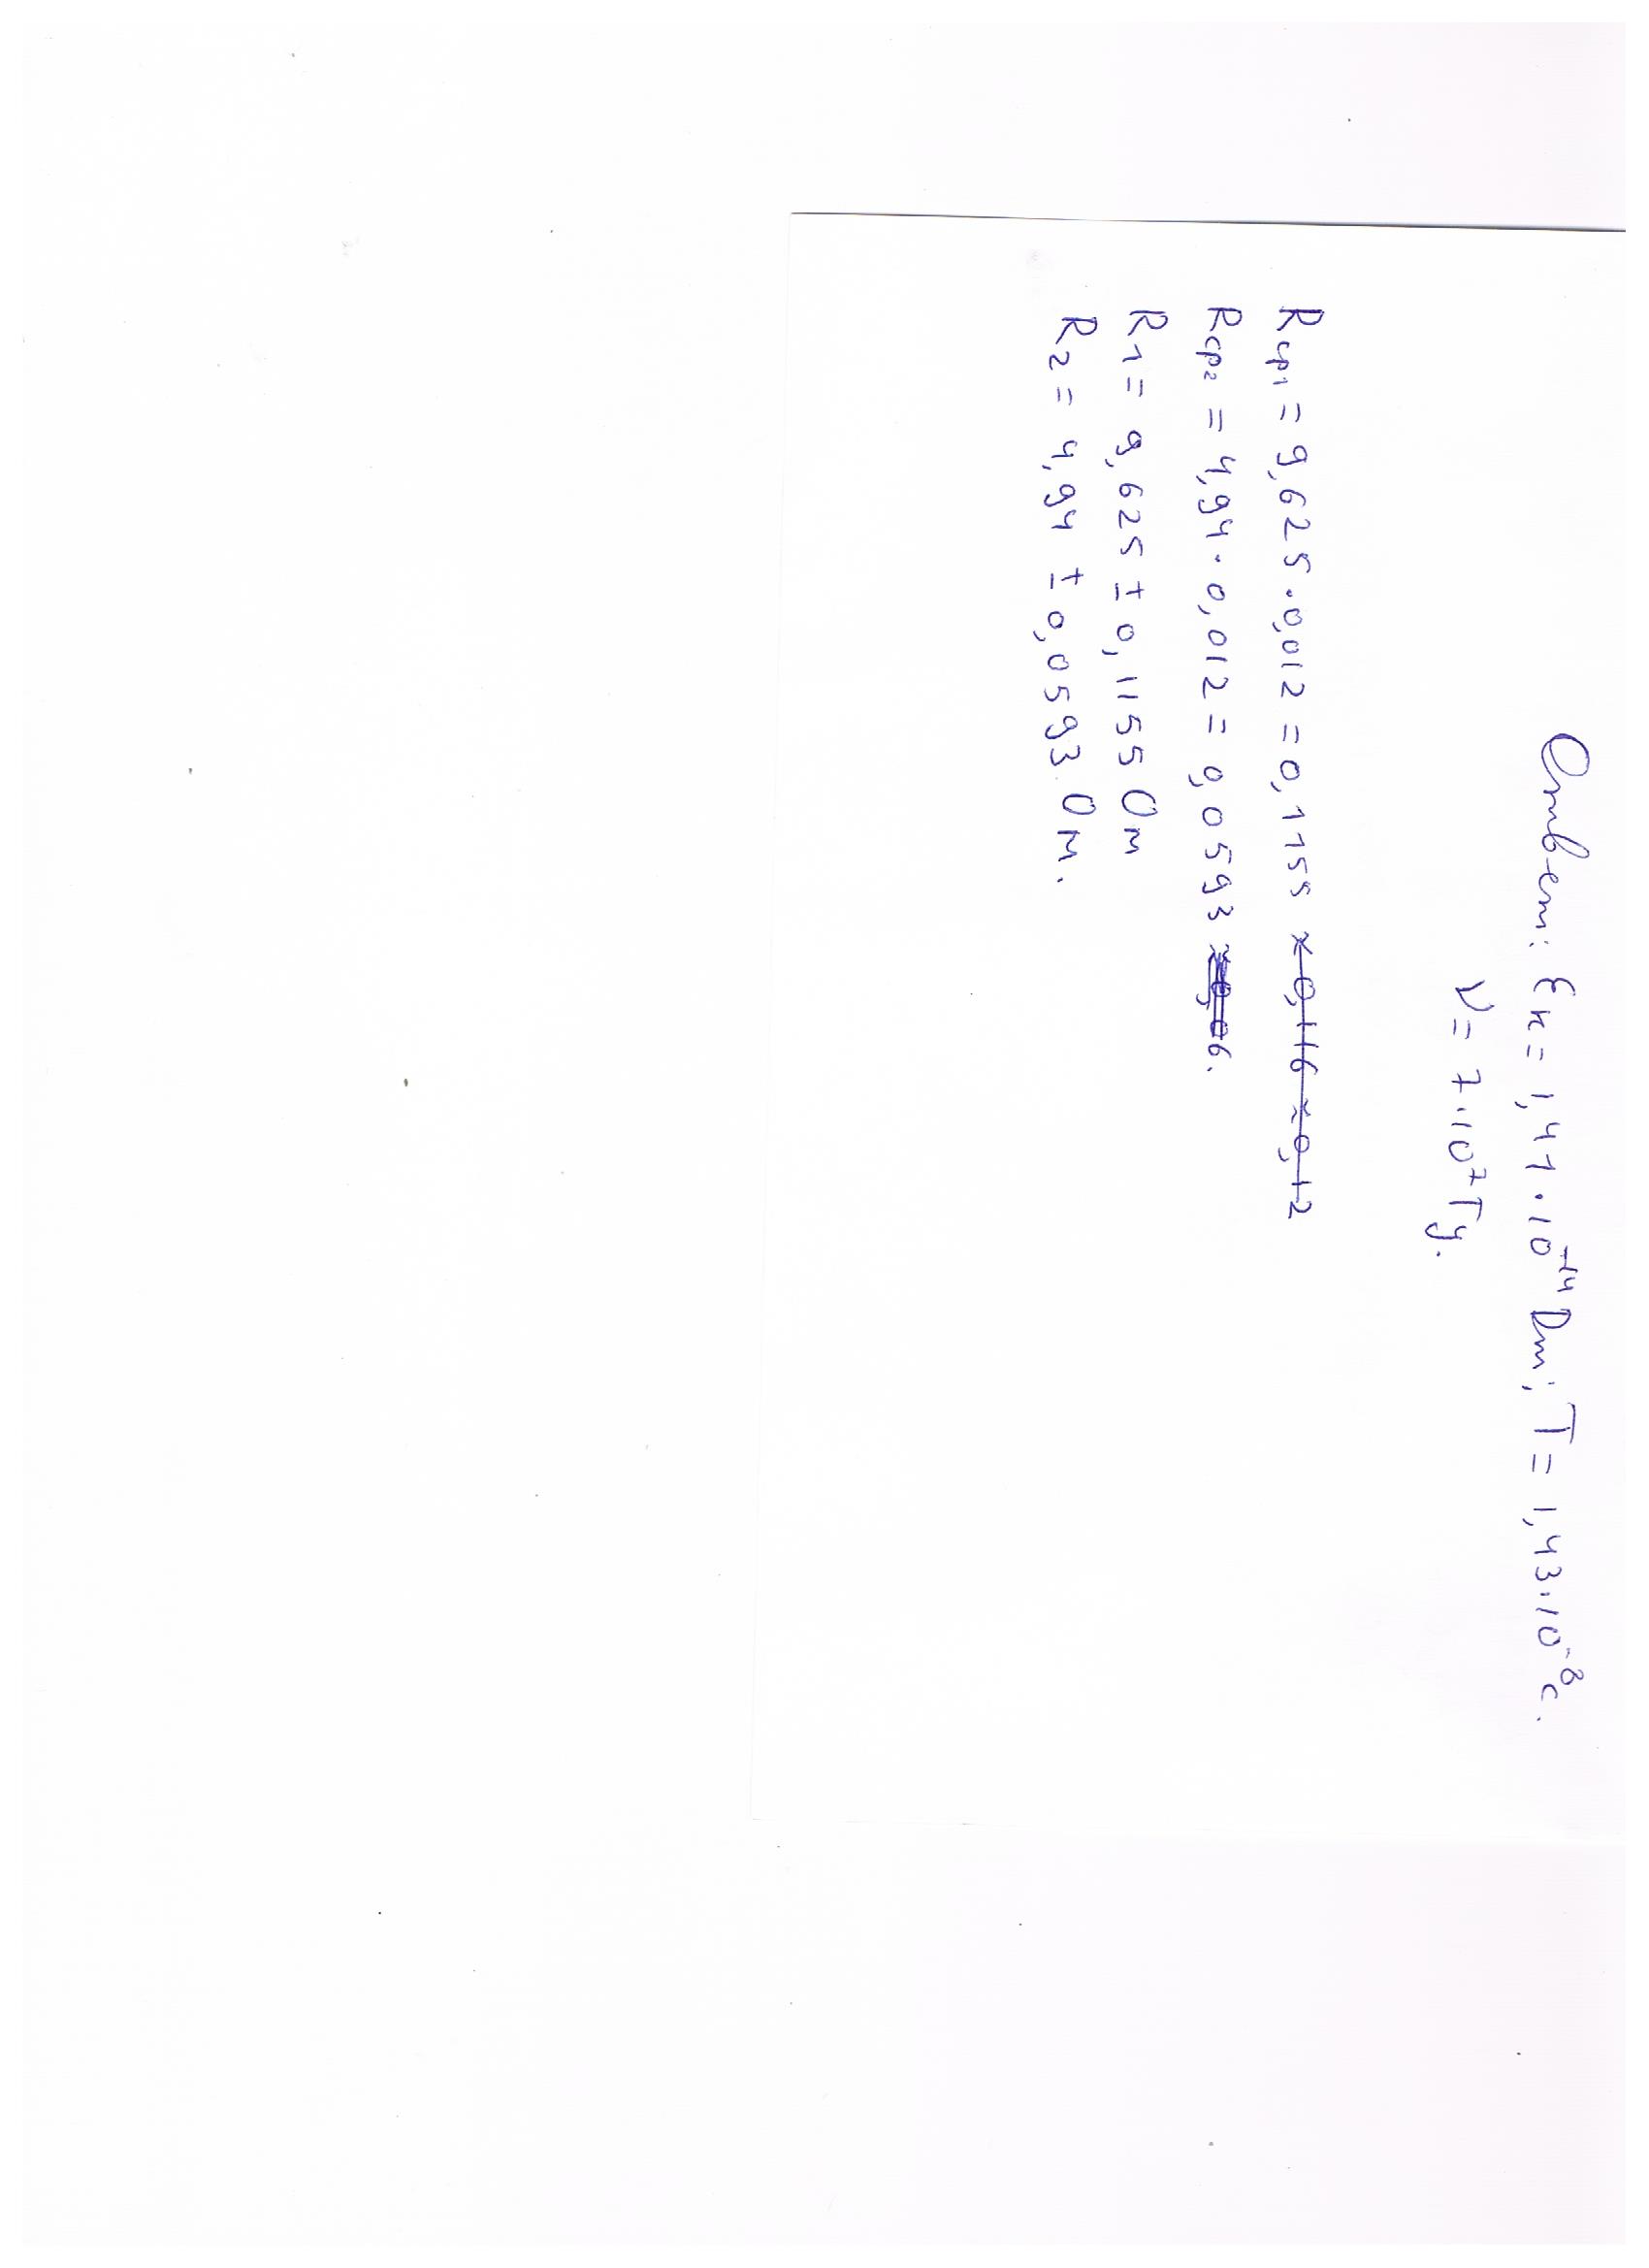 Ответ: Eк = 1,41 · 10⁻¹⁴ Dж; T = 1,43 · 10⁻⁸ с.
ν = 7 · 10⁷ Гц.
Rср₁ = 9,625 · 0,012 = 0,1155 ≈ 0,116 ≈ 0,12
Rср₂ = 4,94 · 0,012 = 0,0593 ≈ 0,06.
R1 = 9,625 ± 0,1155 Ом
R2 = 4,94 ± 0,0593 Ом.